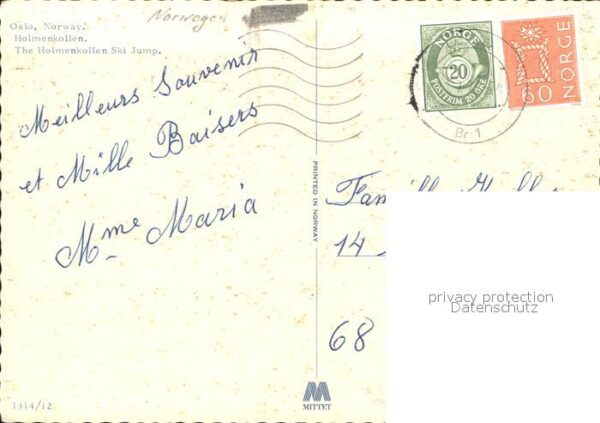 Norwegen
Oslo, Norway.
Holmenkollen.
The Holmenkollen Ski Jump.
NORGE
20
POSTFRIM. 20 ØRE
NORGE
60
Br. 1
Meilleurs Souvenir
et Mille Baisers
Mme Maria
PRINTED IN NORWAY
14
68
privacy protection
Datenschutz
1314/12
MITTET